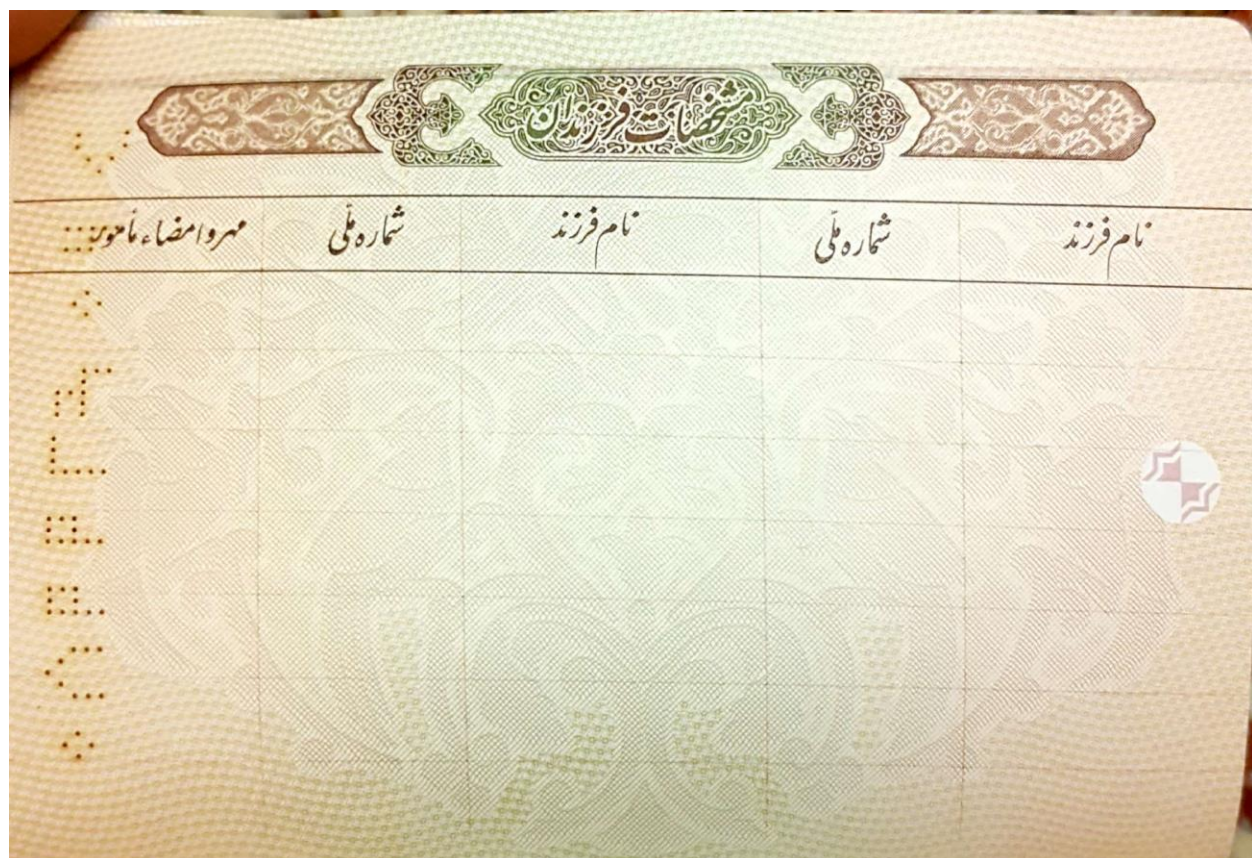 مشخصات فرزندان
نام فرزند شماره ملّی نام فرزند شماره ملّی مهر و امضاء مأمور